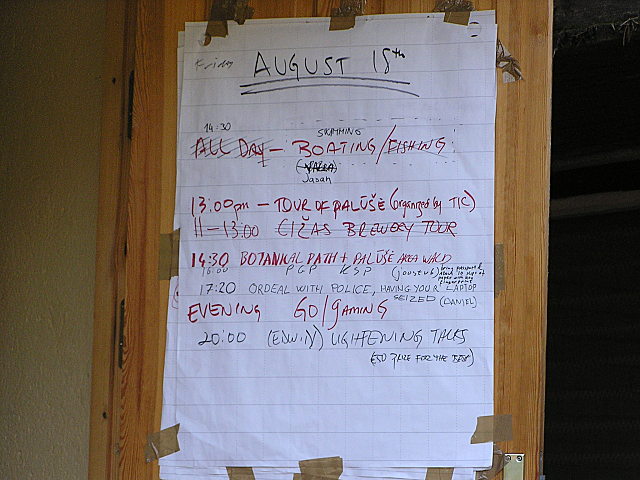 Friday AUGUST 18th
14:30 SWIMMING
ALL DAY - BOATING/FISHING
Jasan
13:00pm - TOUR OF PALŪŠE (organized by TIC)
11-13:00 ČIŽAS BREWERY TOUR
14:30 BOTANICAL PATH + PALŪŠE AREA WALK
16:00 PGP KSP
17:20 ORDEAL WITH POLICE, HAVING YOUR LAPTOP
SEIZED (DANIEL)
EVENING GO/gAMING
20:00 (EDWIN) LIGHTENING TALKS
PRIZE FOR THE BEST)